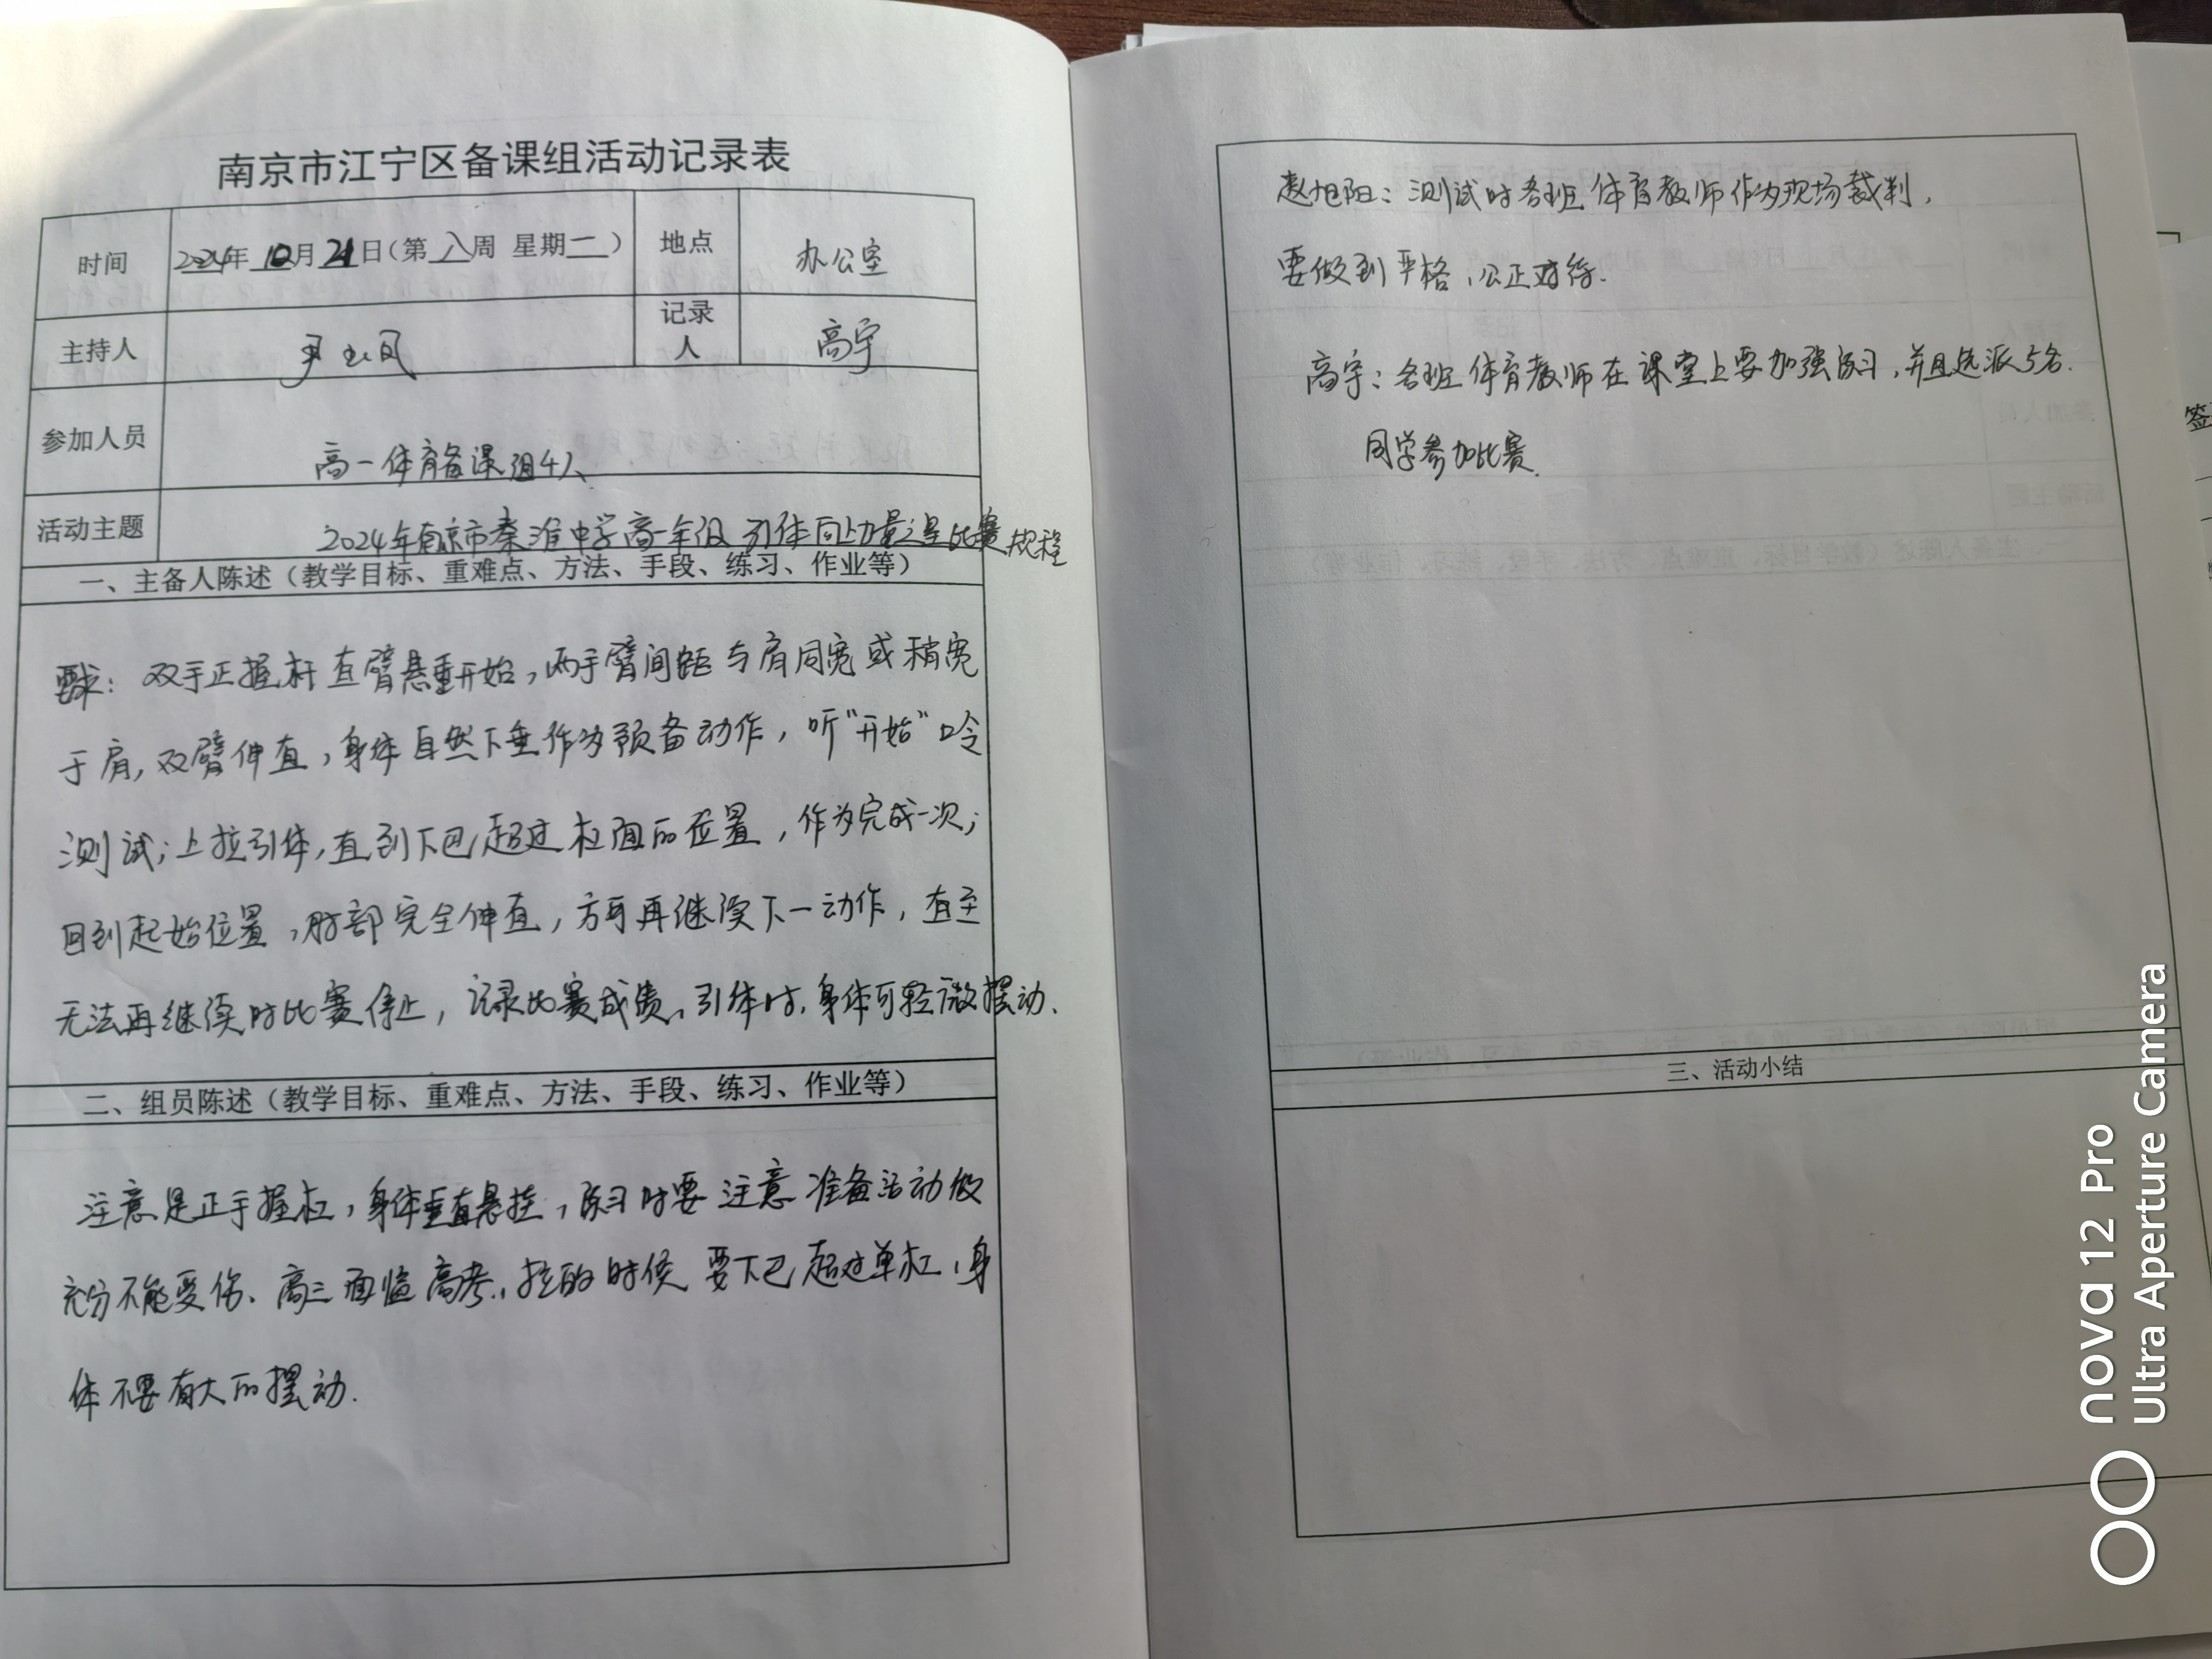 南京市江宁区备课组活动记录表
时间 2024年 10月 21日(第 八周 星期二) 地点 办公室
主持人 记录人 高宇
参加人员 高一体育备课组4人
活动主题 2024年南京市秦淮中学高一年级 引体向上力量之星比赛规程
一、主备人陈述(教学目标、重难点、方法、手段、练习、作业等)
要求:双手正握杆直臂悬垂开始,两手臂间距与肩同宽或稍宽
于肩,双臂伸直,身体自然下垂作为预备动作,听“开始”口令
测试;上拉引体,直到下巴超过杠面的位置,作为完成一次;
回到起始位置,肘部完全伸直,方可再继续下一动作,直至
无法再继续时比赛停止,记录比赛成绩.引体时,身体可轻微摆动.
二、组员陈述(教学目标、重难点、方法、手段、练习、作业等)
注意是正手握杠,身体垂直悬挂,练习时要注意准备活动做
充分不能受伤.高三面临高考,拉的时候要下巴超过单杠,身
体不要有大的摆动.
赵旭阳:测试时各班体育教师作为现场裁判,
要做到严格,公正对待.
高宇:各班体育教师在课堂上要加强练习,并且选派5名.
同学参加比赛.
三、活动小结
签
nova 12 Pro
Ultra Aperture Camera